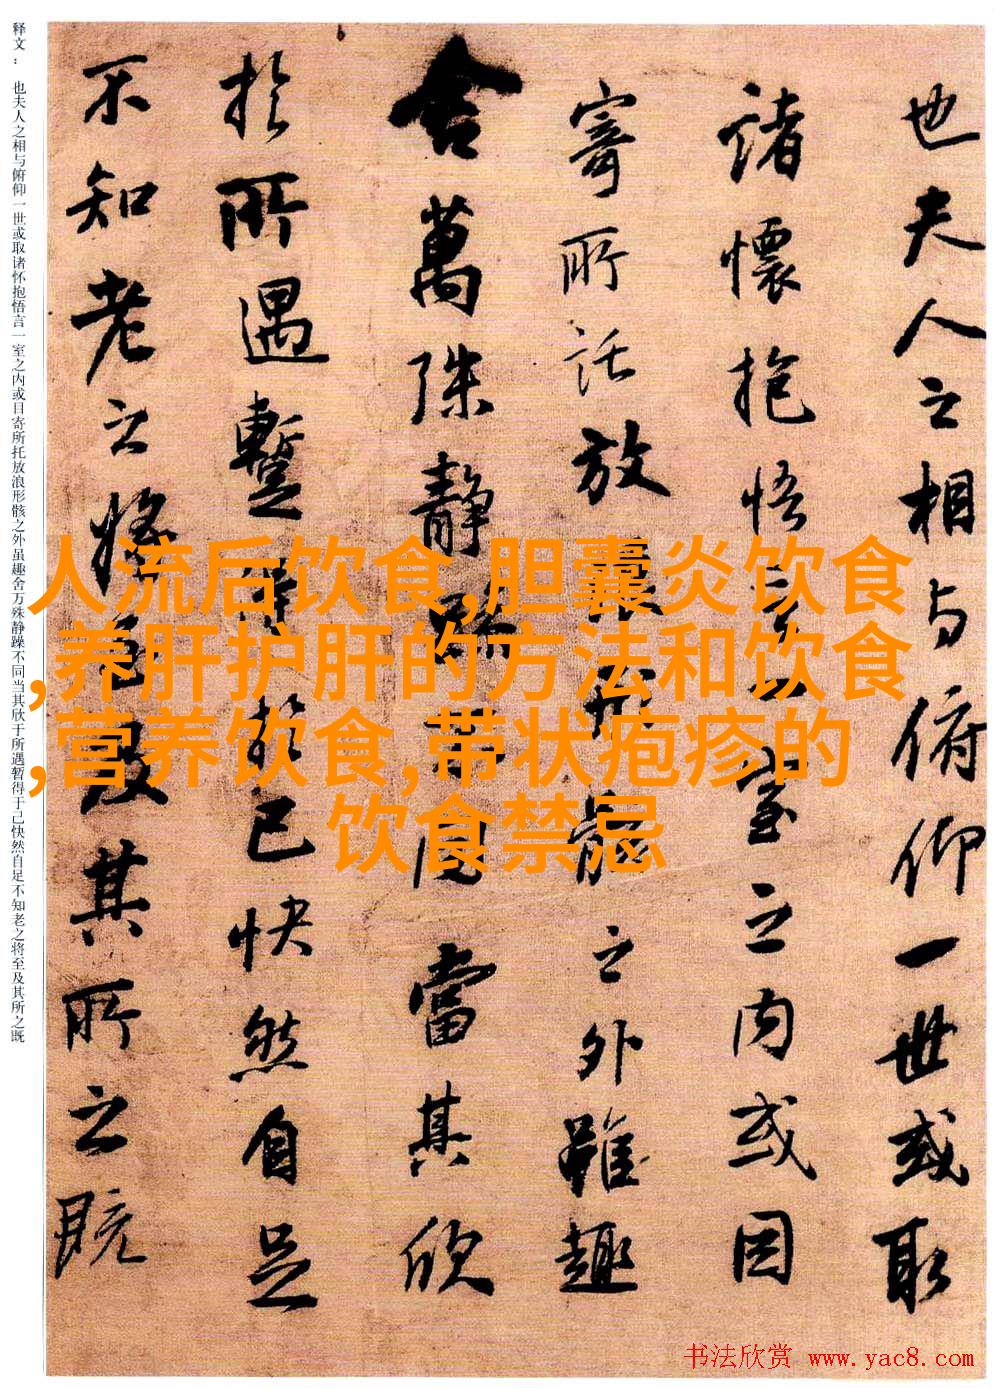 释文： 也夫人之相与俯仰一世或取诸怀抱悟言一室之内或目寄所托放浪形骸之外虽趣舍万殊静躁不同当其欣于所遇暂得于己快然自足不知老之将至及其所之既
也夫人之相与俯仰一世或取
諸懷抱悟言一室之内或因
寄所託放浪形骸之外雖趣
舍萬殊静躁不同當其欣
於所遇蹔得於己快然自足
不知老之將至及其所之既
人流后饮食,胆囊炎饮食
,养肝护肝的方法和饮食
,营养饮食,带状疱疹的
饮食禁忌
书法欣赏 www.yac8.com